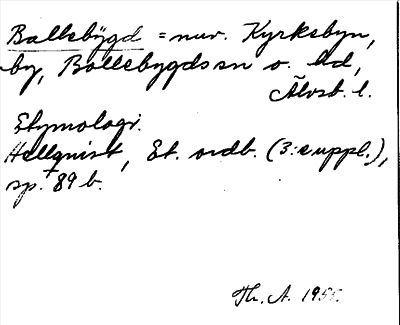 Bollebygd = nuv. Kyrkobyn,
by, Bollebygds sn o. hd,
Älvsb. l.
Etymologi.
Hellquist, Et. ordb. (3:e uppl.),
sp. 89 b.
Th. A. 1955.